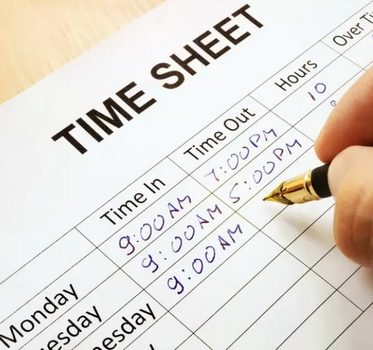 TIME SHEET
Time In Time Out Hours Over
Monday 9:00 AM 7:00 PM 10
9:00 AM 5:00 PM
9:00 AM